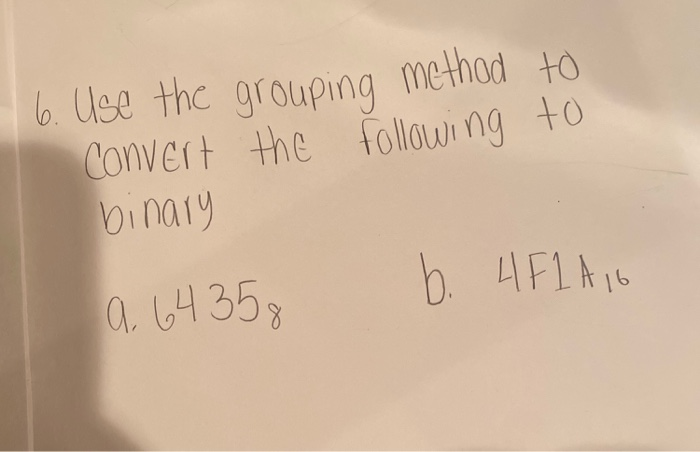 6. Use the grouping method to
convert the following to
binary
a. 6435₈ b. 4F1A₁₆